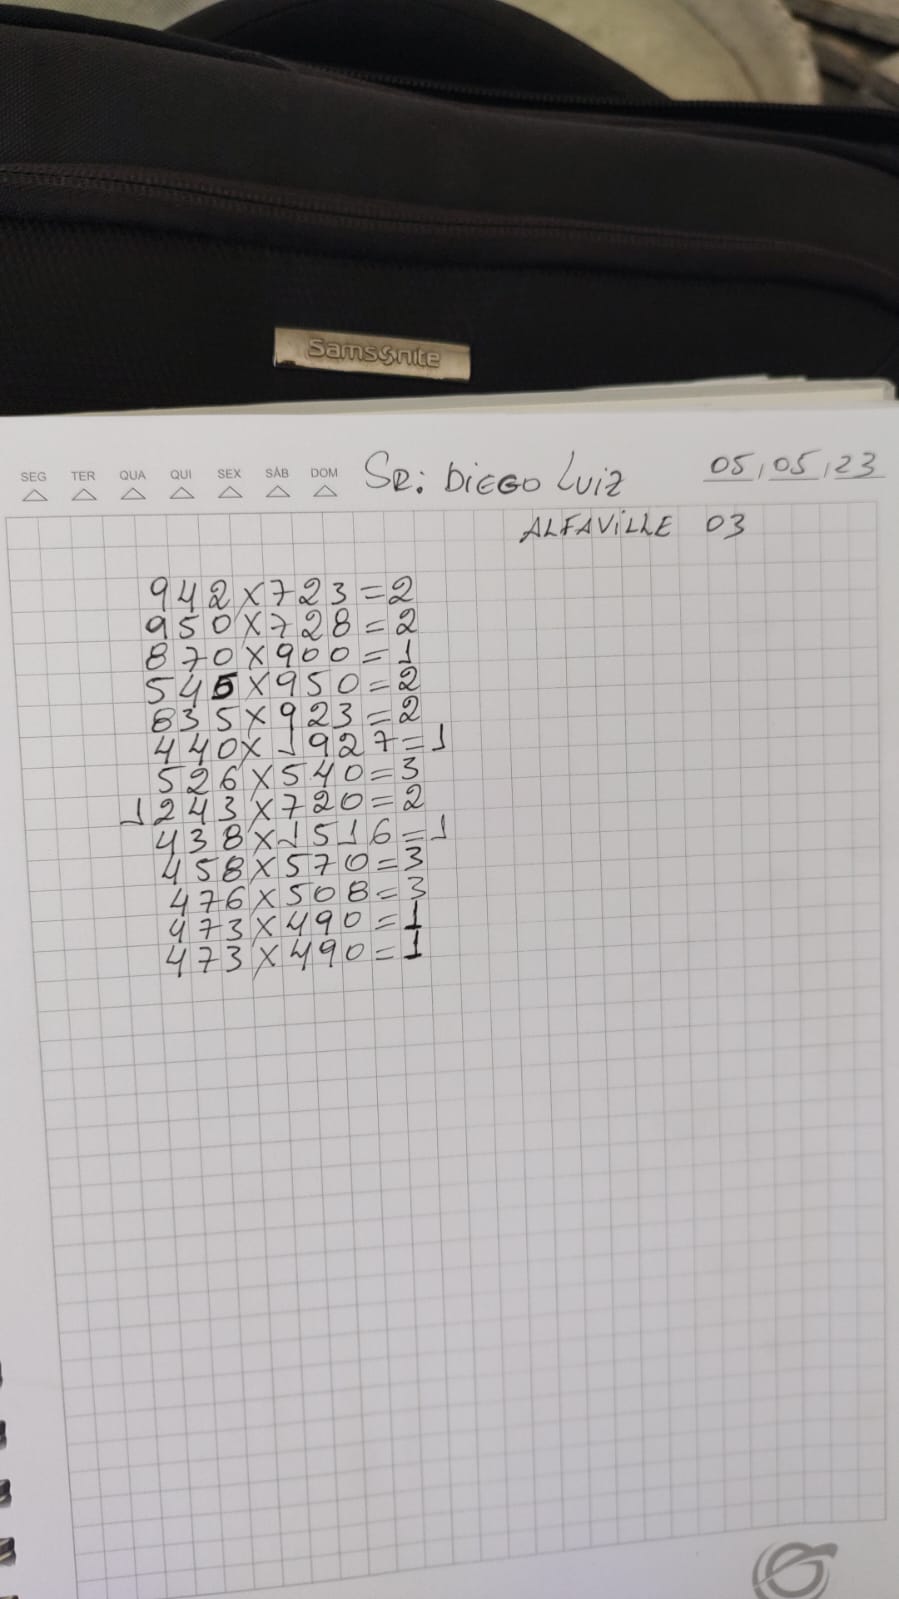 Samsonite
SEG TER QUA QUI SEX SÁB DOM SR: DIEGO LUIZ 05,05,23
ALFAVILLE 03
942X723=2
950X728=2
870X900=1
545X950=2
835X923=2
440X1927=1
526X540=3
1243X720=2
438X1516=1
458X570=3
476X508=3
473X490=1
473X490=1